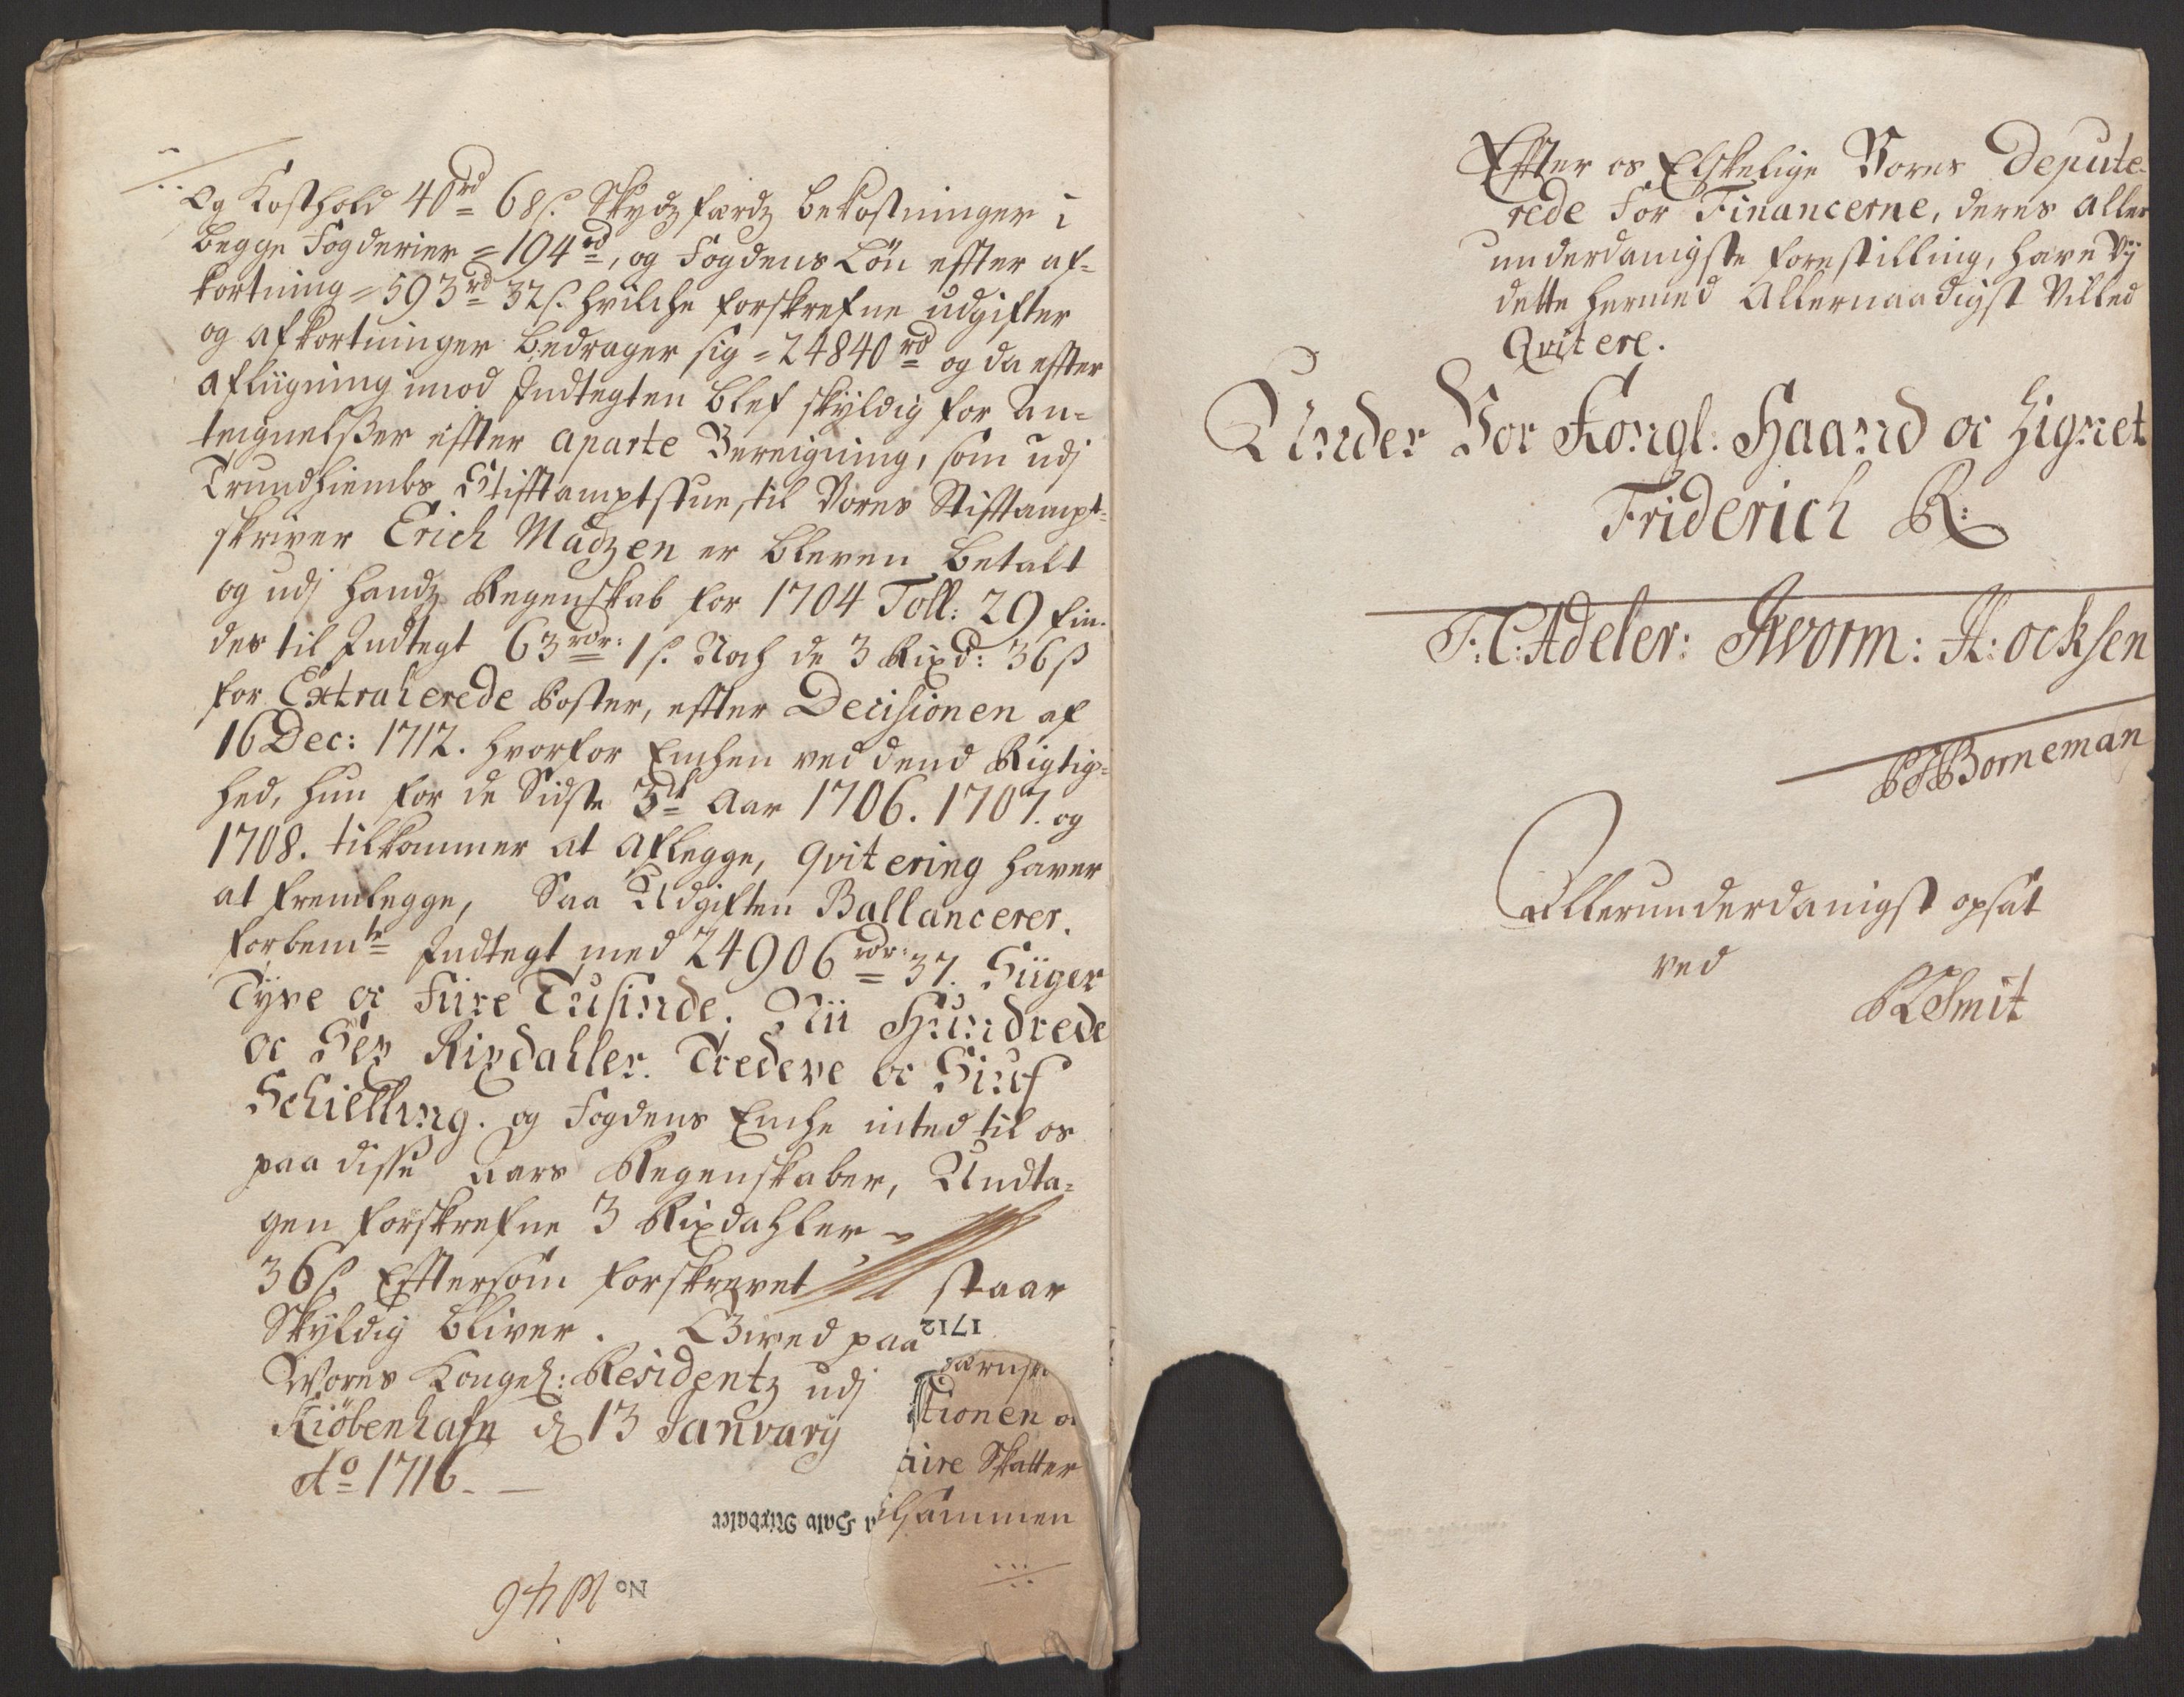 og Kosthold 40rd 68s. Skydsfærdz bekostninger i
begge Fogderier = 194rd, og Fogdens Lön effter af=
kortning = 593rd 32s. hvilche forskrefne udgifter
og afkortninger bedrager sig = 24840rd og da effter
afliigning imod Indtegten blef skyldig for An=
tegnelsser effter aparte Bereigning, som udj
Trundhiembs Stifftamptstue, til Vores Stifftampt=
skriver Erich Madzen er bleven betalt
og udj handz Regenskab for 1704 Toll: 29 fin=
des til Indtegt 63rdr: 1s. Noch de 3 Rixd: 36s
for Extraherede Poster, effter Decisionen af
16 Dec: 1712. hvorfor Enchen ved dend Rigtig=
hed, hun for de Sidste 3de Aar 1706. 1707. og
1708. tilkommer at aflegge, qvitering haver
at fremlegge, Saa Udgiften Ballancerer.
forbemte Indtegt med 24906rdr: 37. Siiger
Tyve oc Fiire Tusinde. Nii Hundrede
oc Sex Rixdahler. Tredeve oc Siuf
Schielling. og Fogdens Enche inted til os
paa disse Aars Regenskaber, Undta=
gen forskrefne 3 Rixdahler =
36s. Efftersom forskrevet staar
Skyldig bliver. Gived paa
Vores Kongel: Residentz udj
Kiöbenhafn d 13 Januarij
Ao 1716.
1712
tionen o
aire Skatter
ilsammen
a Halv Rixdaler
No 46
Effter os Elskelige Vores Depute=
rede for Financerne, deres aller
underdanigste forestilling, have Vj
dette hermed Allernaadigst Villed
Qvitere.
Under Vor Kongl. Haand oc Zignet
Friderich R:
F: C: Adeler: JWorm: A: ocksen
Borneman
Allerunderdanigst opsat
ved
Smit